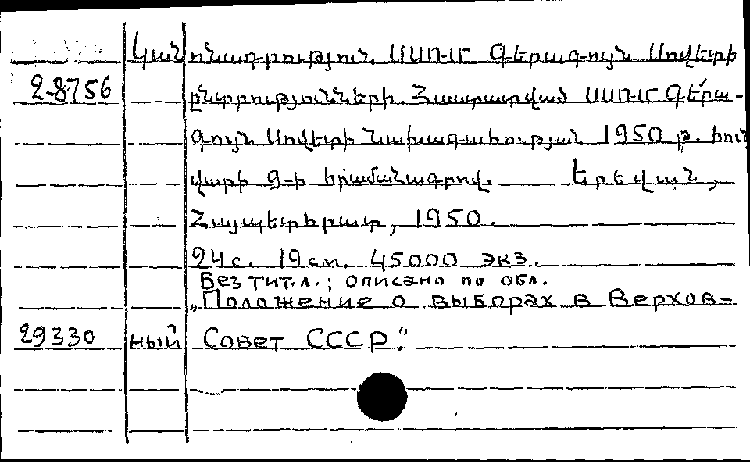 Կանոնադրություն ՍՍՌՄ Գերագույն Սովետի
2-8756 ընտրությունների. Հաստատված ՍՍՌՄ Գերա-
գույն Սովետի Նախագահության 1950 թ. հուն
վարի 9-ի հրամանագրով. Երևան,
Հայպետհրատ, 1950.
24с. 19см. 45000 экз.
Без тит.л.; описано по обл.
„Положение о выборах в Верхов-
29330 ный Совет СССР."